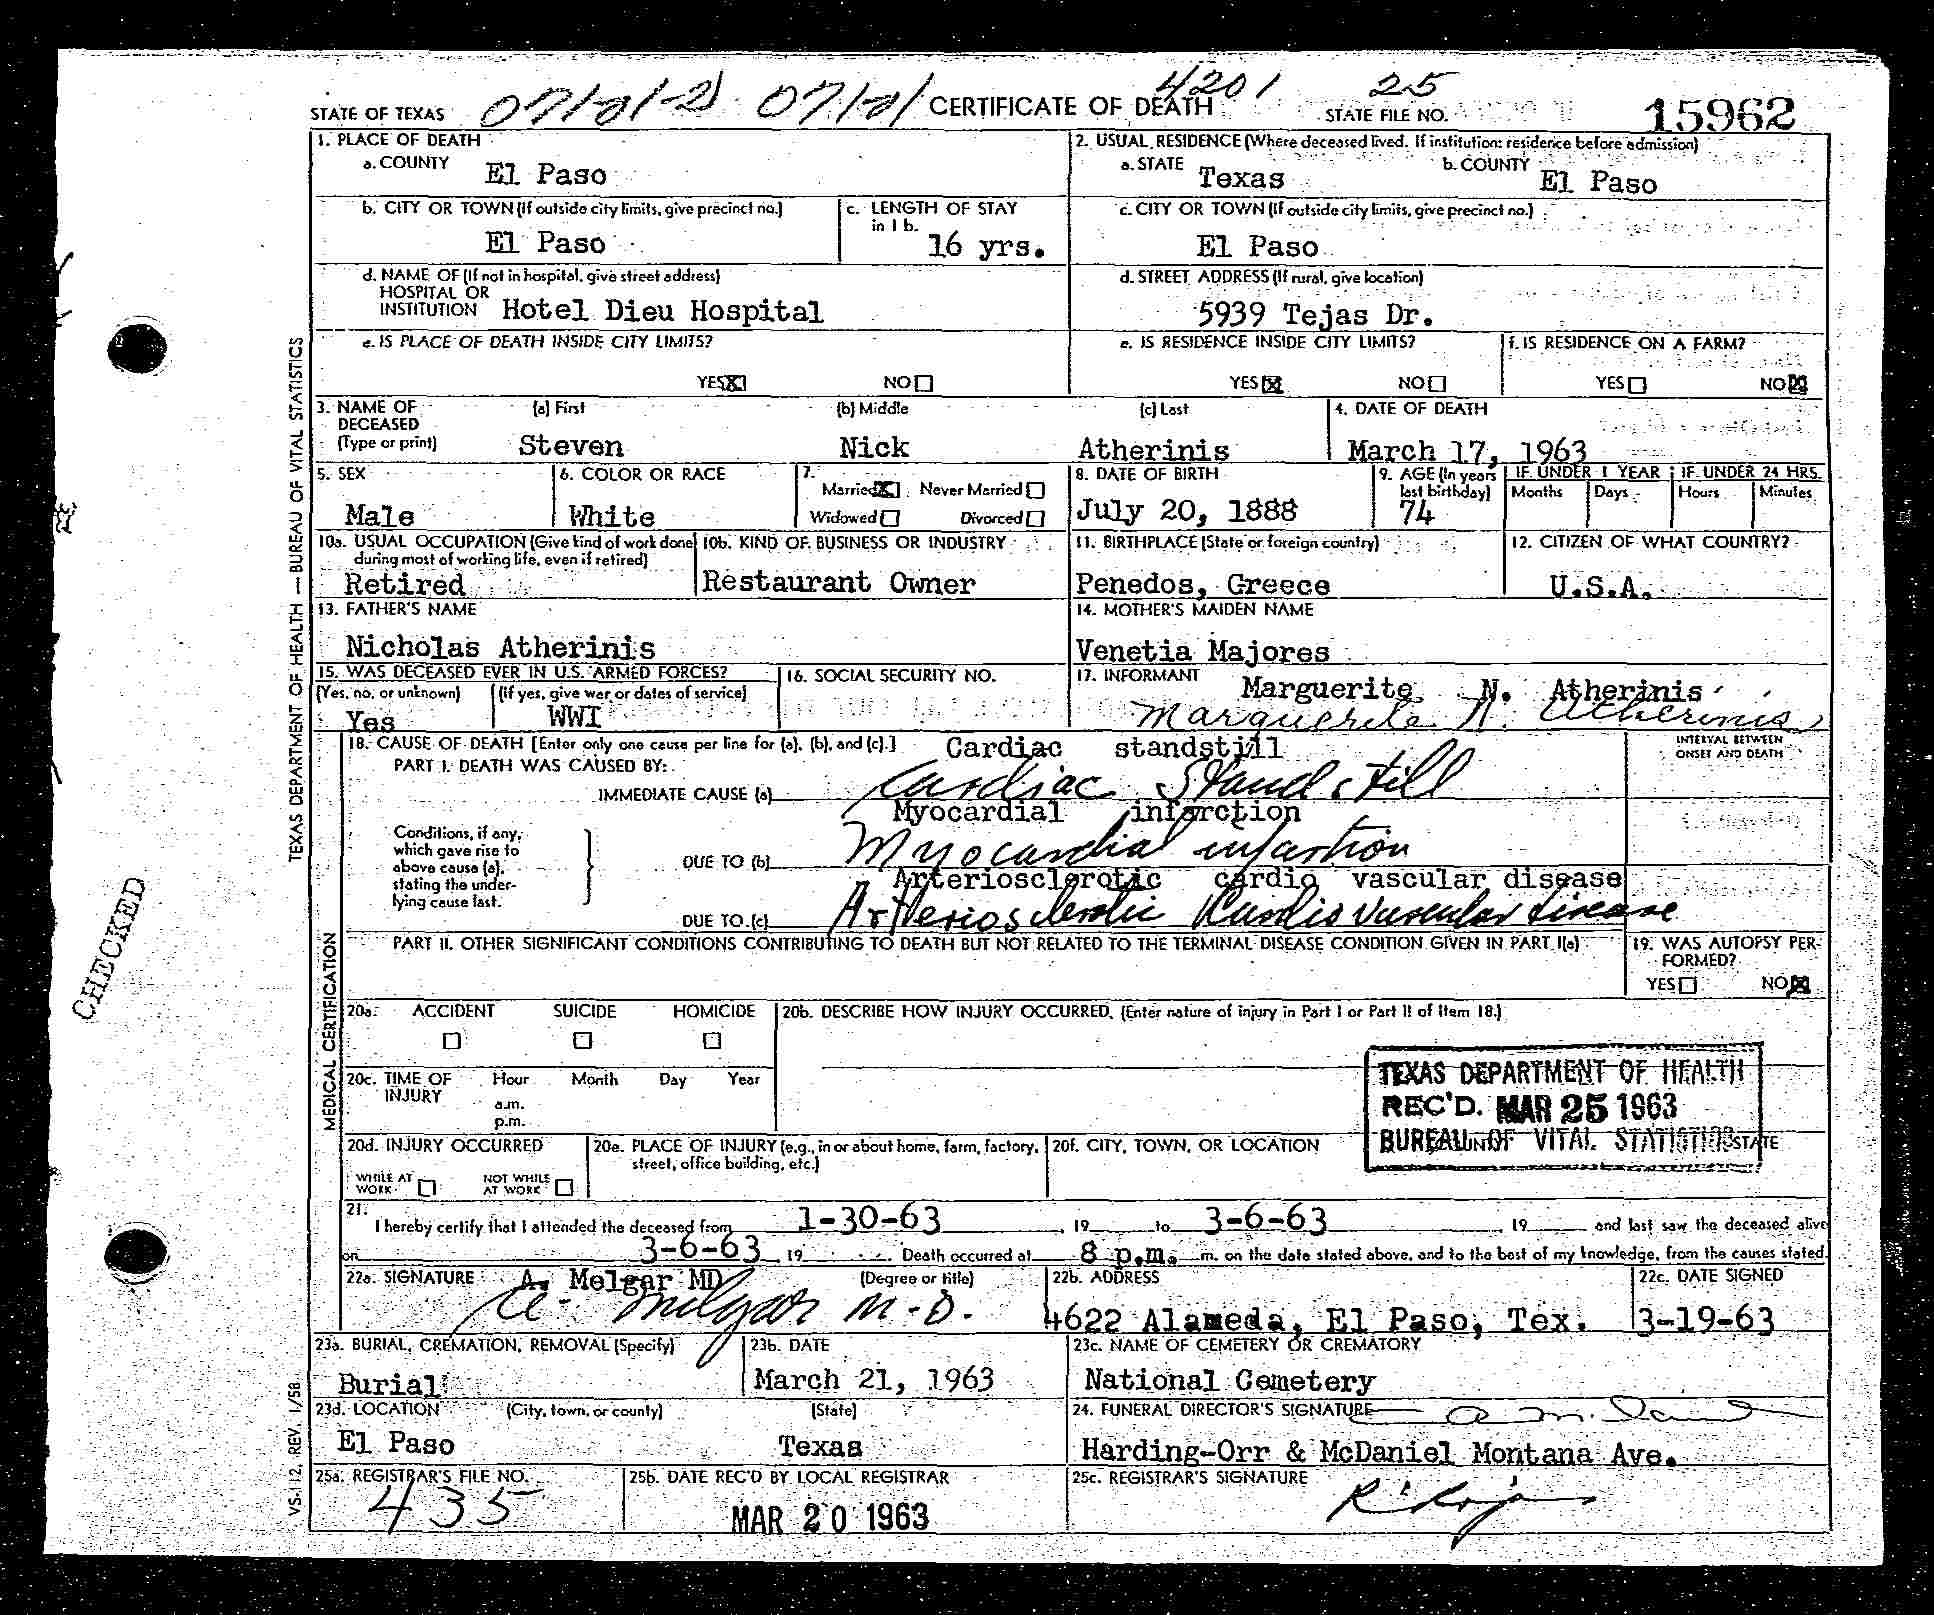 STATE OF TEXAS CERTIFICATE OF DEATH 4201 25 STATE FILE NO. 15962
1. PLACE OF DEATH
a. COUNTY El Paso
2. USUAL RESIDENCE (Where deceased lived. If institution: residence before admission)
a. STATE Texas b. COUNTY El Paso
b. CITY OR TOWN (If outside city limits, give precinct no.) El Paso
c. LENGTH OF STAY in 1 b. 16 yrs.
c. CITY OR TOWN (If outside city limits, give precinct no.) El Paso
d. NAME OF (If not in hospital, give street address)
HOSPITAL OR
INSTITUTION Hotel Dieu Hospital
d. STREET ADDRESS (If rural, give location)
5939 Tejas Dr.
e. IS PLACE OF DEATH INSIDE CITY LIMITS?
YES NO
e. IS RESIDENCE INSIDE CITY LIMITS?
YES NO
f. IS RESIDENCE ON A FARM?
YES NO
3. NAME OF DECEASED (Type or print)
(a) First Steven
(b) Middle Nick
(c) Last Atherinis
4. DATE OF DEATH
March 17, 1963
5. SEX
Male
6. COLOR OR RACE
White
7.
Married Never Married
Widowed Divorced
8. DATE OF BIRTH
July 20, 1888
9. AGE (In years last birthday)
74
IF UNDER 1 YEAR
Months Days
IF UNDER 24 HRS.
Hours Minutes
10a. USUAL OCCUPATION (Give kind of work done during most of working life, even if retired)
Retired
10b. KIND OF BUSINESS OR INDUSTRY
Restaurant Owner
11. BIRTHPLACE (State or foreign country)
Penedos, Greece
12. CITIZEN OF WHAT COUNTRY?
U.S.A.
13. FATHER'S NAME
Nicholas Atherinis
14. MOTHER'S MAIDEN NAME
Venetia Majores
15. WAS DECEASED EVER IN U.S. ARMED FORCES?
(Yes, no, or unknown) (If yes, give war or dates of service)
Yes WWI
16. SOCIAL SECURITY NO.
17. INFORMANT Marguerite N. Atherinis
Marguerite N. Atherinis
18. CAUSE OF DEATH [Enter only one cause per line for (a), (b), and (c).] Cardiac standstill
PART I. DEATH WAS CAUSED BY:
IMMEDIATE CAUSE (a) Cardiac Standstill
INTERVAL BETWEEN ONSET AND DEATH
Myocardial infarction
Conditions, if any, which gave rise to above cause (a), stating the underlying cause last.
DUE TO (b) Myocardial infartion
Arteriosclerotic cardio vascular disease
DUE TO (c) Artheriosclerotic Kardiovascular disease
PART II. OTHER SIGNIFICANT CONDITIONS CONTRIBUTING TO DEATH BUT NOT RELATED TO THE TERMINAL DISEASE CONDITION GIVEN IN PART I(a)
19. WAS AUTOPSY PERFORMED?
YES NO
20a. ACCIDENT SUICIDE HOMICIDE
20b. DESCRIBE HOW INJURY OCCURRED. (Enter nature of injury in Part I or Part II of Item 18.)
20c. TIME OF INJURY Hour Month Day Year
a.m.
p.m.
TEXAS DEPARTMENT OF HEALTH
REC'D. MAR 25 1963
BUREAU OF VITAL STATISTICS
20d. INJURY OCCURRED
WHILE AT WORK NOT WHILE AT WORK
20e. PLACE OF INJURY (e.g., in or about home, farm, factory, street, office building, etc.)
20f. CITY, TOWN, OR LOCATION STATE
21.
I hereby certify that I attended the deceased from 1-30-63, 19 to 3-6-63, 19 and last saw the deceased alive
on 3-6-63 19 . Death occurred at 8 p.m. m. on the date stated above, and to the best of my knowledge, from the causes stated.
22a. SIGNATURE A. Melgar MD (Degree or title)
A. Melgar M.D.
22b. ADDRESS
4622 Alameda, El Paso, Tex.
22c. DATE SIGNED
3-19-63
23a. BURIAL, CREMATION, REMOVAL (Specify)
Burial
23b. DATE
March 21, 1963
23c. NAME OF CEMETERY OR CREMATORY
National Cemetery
23d. LOCATION (City, town, or county) (State)
El Paso Texas
24. FUNERAL DIRECTOR'S SIGNATURE
Harding-Orr & McDaniel Montana Ave.
25a. REGISTRAR'S FILE NO.
435
25b. DATE REC'D BY LOCAL REGISTRAR
MAR 20 1963
25c. REGISTRAR'S SIGNATURE
TEXAS DEPARTMENT OF HEALTH — BUREAU OF VITAL STATISTICS
MEDICAL CERTIFICATION
CHECKED
VS-112, REV. 1/58